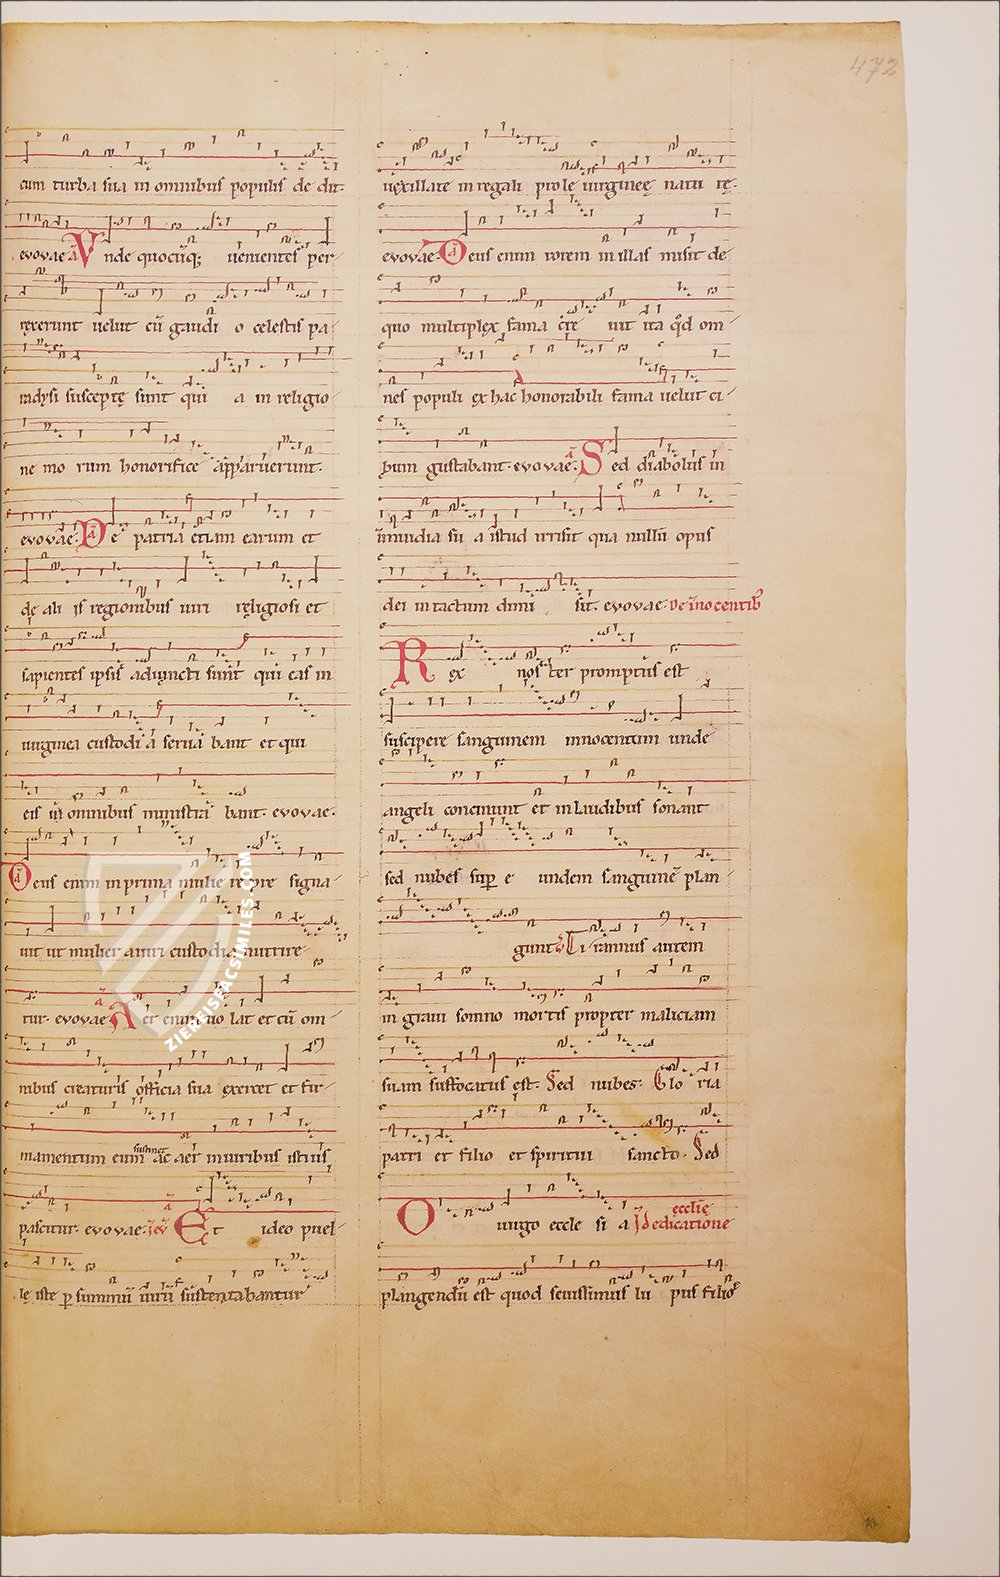 472
cum turba sua in omnibus populis de di-
evovae. a Vnde quocūq; uenientes per-
rexerunt uelut cū gaudio celestis pa-
radysi susceptę sunt quia in religio-
ne morum honorifice apparuerunt.
evovae. a De patria etiam earum et
de aliis regionibus uiri religiosi et
sapientes ipsis adiuncti sunt qui eas in
uirginea custodia seruabant et qui
eis in omnibus ministrabant. evovae.
a Deus enim in prima muliere presigna-
uit ut mulier a uiri custodia nutrire-
tur. evovae. a Aer enim uolat et cū om-
nibus creaturis officia sua exercet et fir-
mamentum eum sustinet ac aer in uiribus istius
pascitur. evovae. a Et ideo puel-
lę istę p summū uirū sustentabantur
uexillatę in regali prole uirgineę naturę.
evovae. a Deus enim rorem in illas misit de
quo multiplex fama creuit ita qd om-
nes populi ex hac honorabili fama uelut ci-
bum gustabant. evovae. a Sed diabolus in
inuidia sua istud irrisit qua nullū opus
dei intactum dimisit. evovae. De innocentib
Rex noster promptus est
suscipere sanguinem innocentum unde
angeli concinunt et in laudibus sonant
sed nubes sup eundem sanguinē plan-
gunt. Tirannus autem
in graui somno mortis propter maliciam
suam suffocatus est. Sed nubes. Gloria
patri et filio et spiritui sancto. Sed
O uirgo ecclesia In dedicatione ecclęsię
plangendū est quod seuissimus lupus filios
ZIEREISFACSIMILES.COM